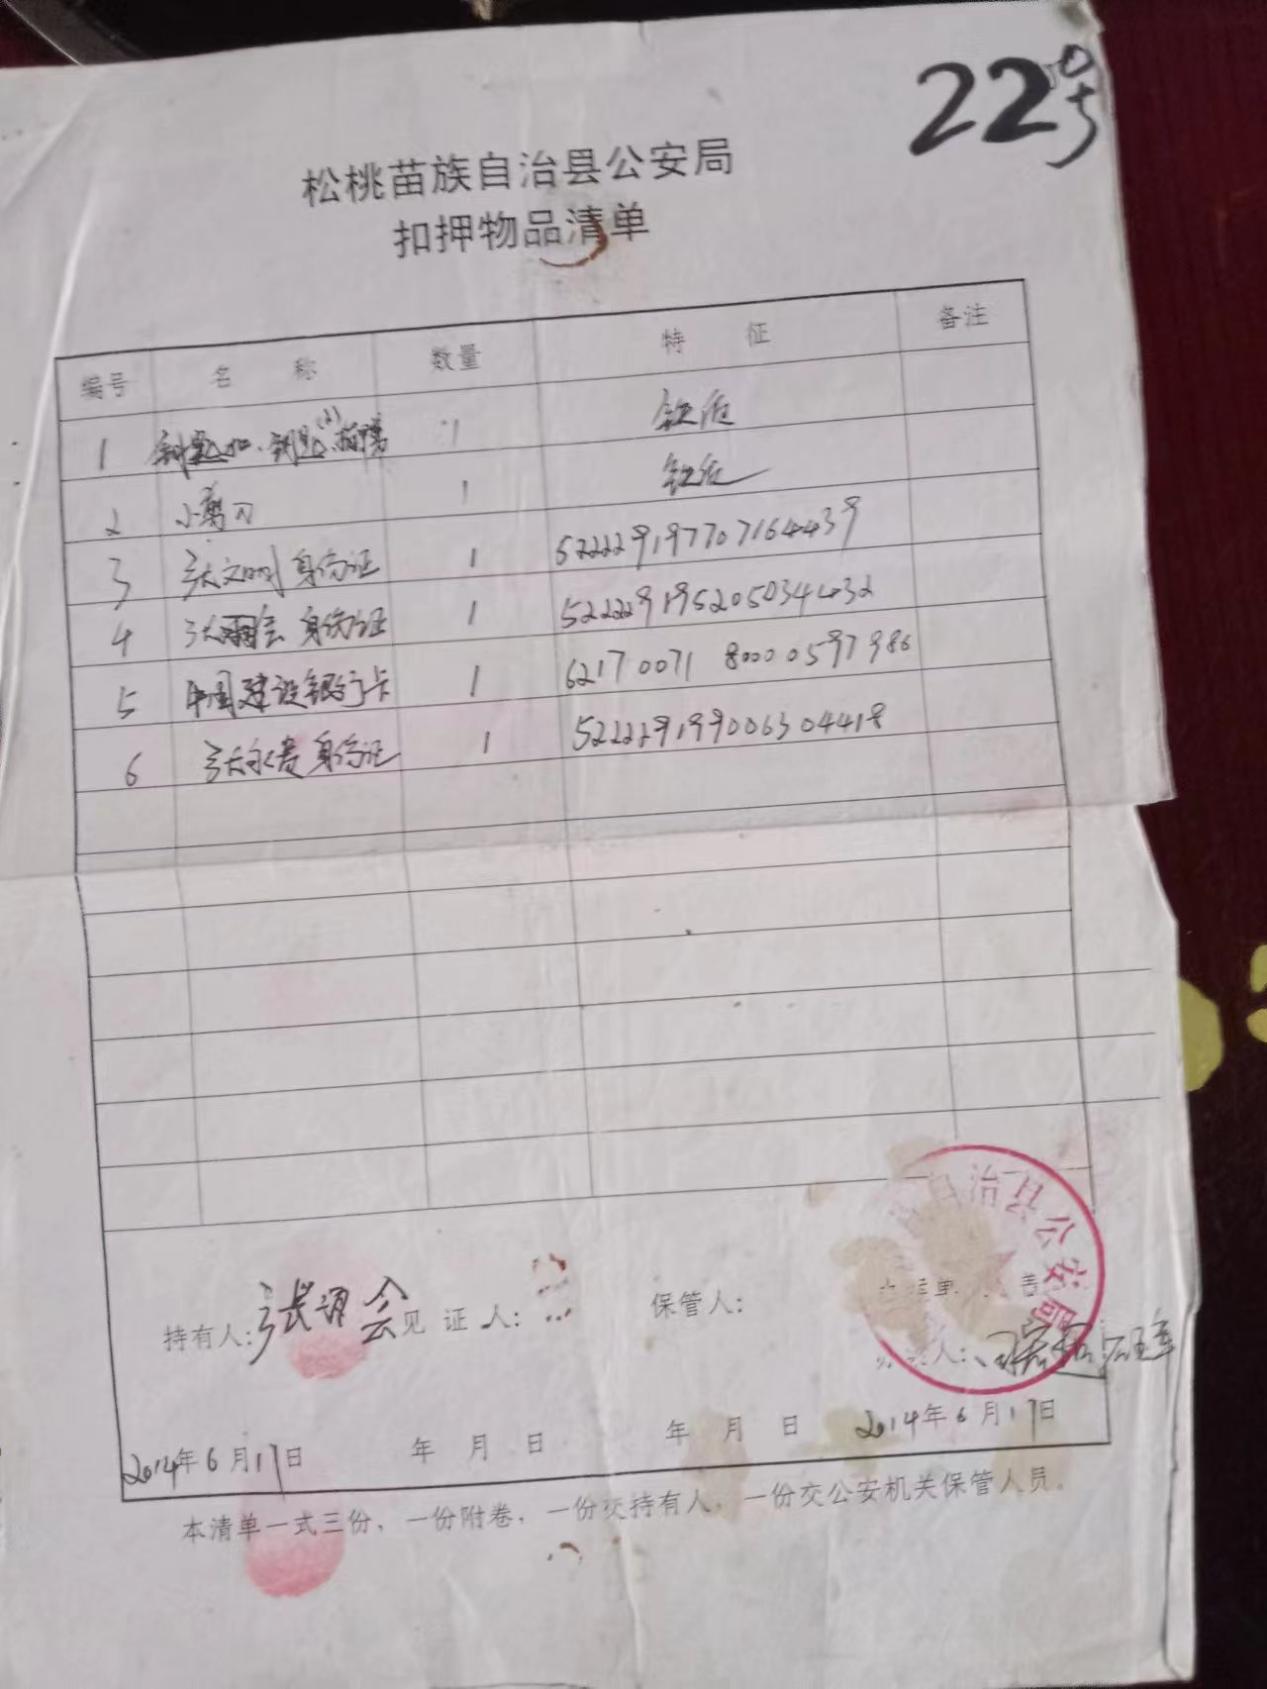 22号
松桃苗族自治县公安局
扣押物品清单
编号 名 称 数量 特 征 备注
1 1 铁质
2 小剪刀 1 铁质
3 张文明 身份证 1 522229197707164439
4 张 会 身份证 1 522229195205034432
5 中国建设银行卡 1 62170071 80000597986
6 张永贵 身份证 1 522229199006304418
持有人: 张 会 见 证 人: 保管人: 自治县公安局
人:
2014年6月17日 年 月 日 年 月 日 2014年6月17日
本清单一式三份,一份附卷,一份交持有人,一份交公安机关保管人员。